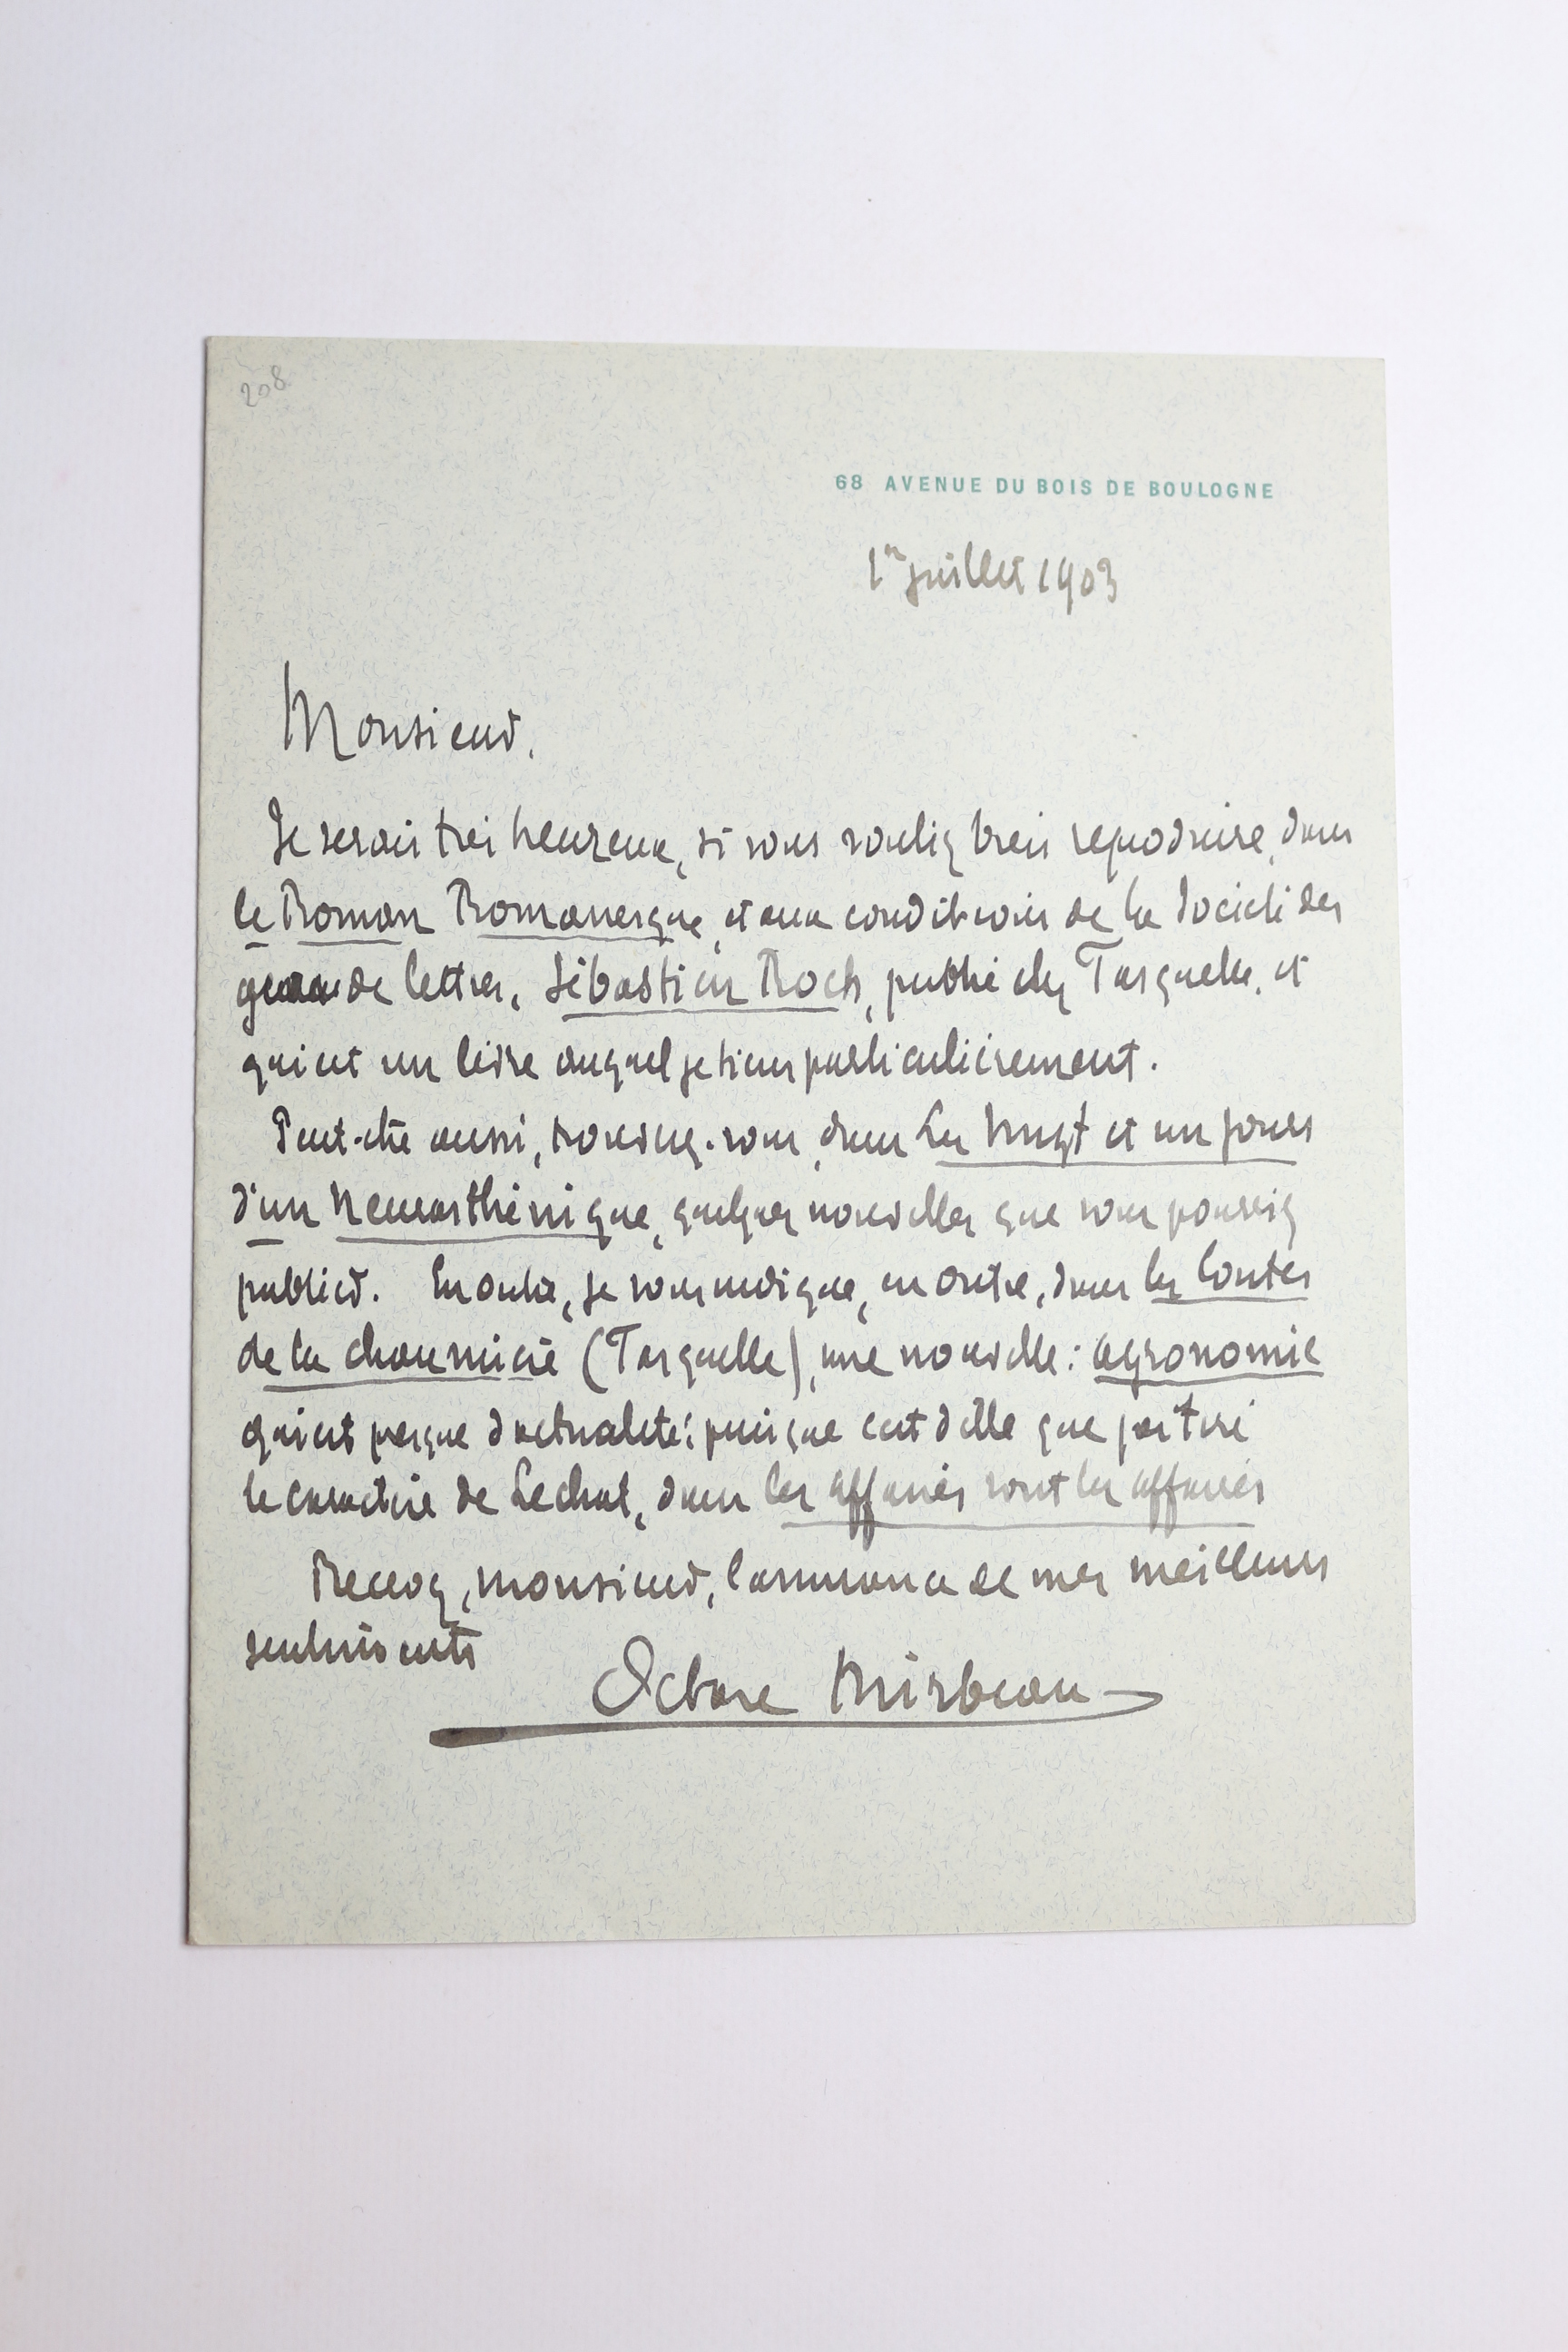 208
68 AVENUE DU BOIS DE BOULOGNE
1er juillet 1903
Monsieur,
Je serais très heureux, si vous vouliez bien reproduire, dans
le Roman Romanesque, et aux conditions de la Société des
gens de lettres, Sébastien Roch, publié chez Fasquelle, et
qui est un livre auquel je tiens particulièrement.
Peut-être aussi, trouverez-vous, dans Les Vingt et un jours
d'un Neurasthénique, quelques nouvelles que vous pourriez
publier. En outre, je vous indique, en outre, dans les Contes
de la chaumière (Fasquelle), une nouvelle : agronomie
qui est presque d'actualité; puisque c'est d'elle que j'ai tiré
le caractère de Lechat, dans les affaires sont les affaires
Recevez, monsieur, l'assurance de mes meilleurs
sentiments
Octave Mirbeau